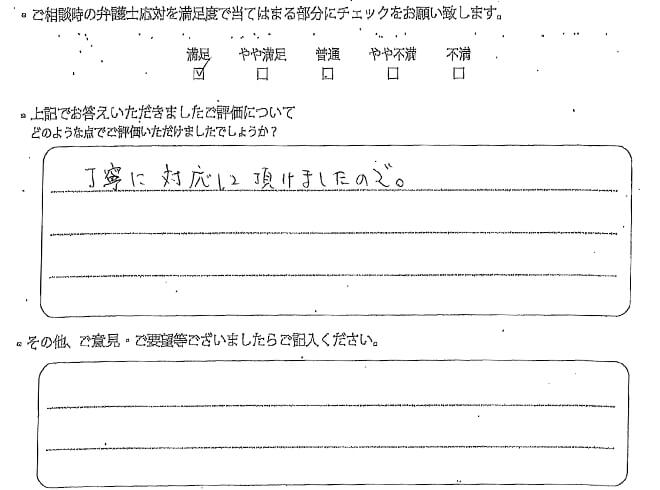 ご相談時の弁護士応対を満足度で当てはまる部分にチェックをお願い致します。
満足 やや満足 普通 やや不満 不満
☑ □ □ □ □
上記でお答えいただきましたご評価について
どのような点でご評価いただけましたでしょうか？
丁寧に対応して頂けましたので。
その他、ご意見・ご要望等ございましたらご記入ください。